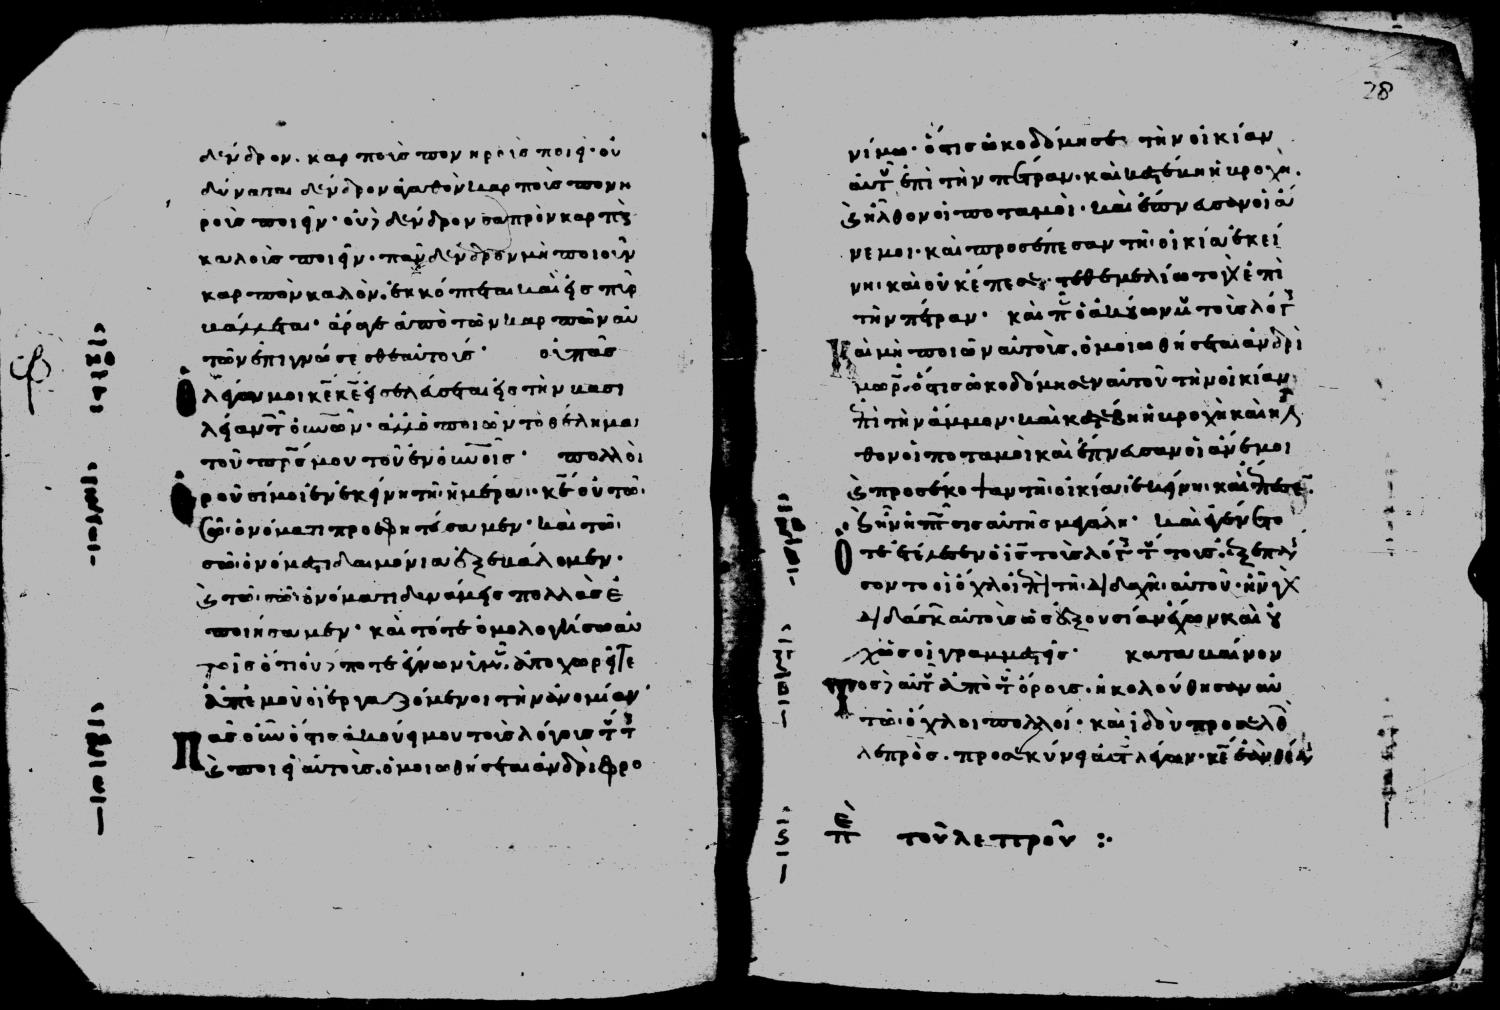 δένδρον. καρποὺς πονηροὺς ποιεῖ· οὐ
δύναται δένδρον ἀγαθὸν καρποὺς πονη
ροὺς ποιεῖν· οὐδὲ δένδρον σαπρὸν καρποὺς
καλοὺς ποιεῖν· πᾶν δένδρον μὴ ποιοῦν
καρπὸν καλὸν. ἐκκόπτεται καὶ εἰς πῦρ
βάλλεται· ἄραγε ἀπὸ τῶν καρπῶν αὐ
τῶν ἐπιγνώσεσθε αὐτούς· οὐ πᾶσ
λέγων μοι κε κε εἰσελεύσεται εἰς τὴν βασι
λείαν τ οὐνῶν· ἀλλὁ ποιῶν τὸ θέλημα
τοῦ πρς μου τοῦ ἐν οὐνοῖς· πολλοὶ
ροῦσί μοι ἐν ἐκείνῃ τῇ ἡμέρᾳ· κε οὐ τῷ
σῷ ὀνόματι προεφητεύσαμεν· καὶ τῷ
σῷ ὀνόματι δαιμόνια ἐξεβάλομεν·
καὶ τῷ σῷ ὀνόματι δυνάμεις πολλὰς ἐ
ποιήσαμεν· καὶ τότε ὁμολογήσω αὐ
τοῖς ὅτι οὐδέποτε ἔγνων ὑμᾶς. ἀποχωρεῖτε
ἀπ' ἐμοῦ οἱ ἐργαζόμενοι τὴν ἀνομίαν·
Πᾶς οὖν ὅστις ἀκούει μου τοὺς λόγους τούτους
καὶ ποιεῖ αὐτούς. ὁμοιωθήσεται ἀνδρὶ φρο
28
νίμῳ· ὅστις ὠκοδόμησε τὴν οἰκίαν
αὐτοῦ ἐπὶ τὴν πέτραν· καὶ κατέβη ἡ βροχὴ.
καὶ ἦλθον οἱ ποταμοὶ· καὶ ἔπνευσαν οἱ ἄ
νεμοι· καὶ προσέπεσαν τῇ οἰκίᾳ ἐκεί
νῃ· καὶ οὐκ ἔπεσε· τεθεμελίωτο γὰρ ἐπὶ
τὴν πέτραν· καὶ πᾶς ὁ ἀκούων μου τοὺς λόγους
Καὶ μὴ ποιῶν αὐτοὺς. ὁμοιωθήσεται ἀνδρὶ
μωρῷ. ὅστις ὠκοδόμησεν αὐτοῦ τὴν οἰκίαν
ἐπὶ τὴν ἄμμον· καὶ κατέβη ἡ βροχὴ καὶ ἦλ
θον οἱ ποταμοὶ καὶ ἔπνευσαν οἱ ἄνεμοι
καὶ προσέκοψαν τῇ οἰκίᾳ ἐκείνῃ· καὶ ἔπεσε.
καὶ ἦν ἡ πτῶσις αὐτῆς μεγάλη· καὶ ἐγένετο
ὅτε ἐτέλεσεν ὁ ις τοὺς λόγους τούτους. ἐξεπλήσ
σοντο οἱ ὄχλοι ἐπὶ τῇ διδαχῇ αὐτοῦ· ἦν γὰρ
διδάσκων αὐτοὺς ὡς ἐξουσίαν ἔχων καὶ οὐ
χ ὡς οἱ γραμματεῖς· καταβαίνον
Τος δὲ αὐτοῦ ἀπὸ τοῦ ὄρους. ἠκολούθησαν αὐ
τῷ ὄχλοι πολλοί· καὶ ἰδοὺ προσελθὼν
λεπρὸς. προσεκύνει αὐτῷ λέγων· κε ἐὰν θέλῃς
τοῦ λεπροῦ :·